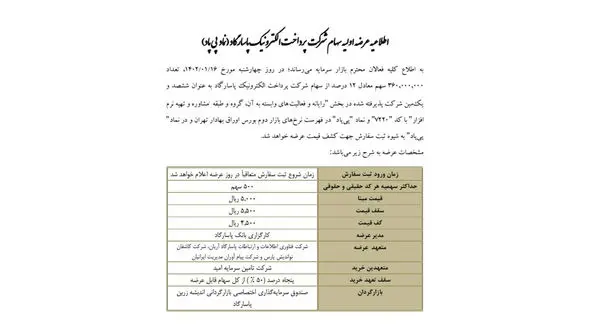 اطلاعیه عرضه اولیه سهام شرکت پرداخت الکترونیک پاسارگاد (نماد پی‌پاد)
به اطلاع کلیه فعالان محترم بازار سرمایه می‌رساند؛ در روز چهارشنبه مورخ ۱۴۰۲/۰۱/۱۶، تعداد
۳۶۰,۰۰۰,۰۰۰ سهم معادل ۱۲ درصد از سهام شرکت پرداخت الکترونیک پاسارگاد به عنوان ششصد و
یک‌مین شرکت پذیرفته شده در بخش "رایانه و فعالیت‌های وابسته به آن، گروه و طبقه مشاوره و تهیه نرم
افزار" با کد "۷۲۲۰" و نماد "پی‌پاد" در فهرست نرخ‌های بازار دوم بورس اوراق بهادار تهران و در نماد"
پی‌پاد" به شیوه ثبت سفارش جهت کشف قیمت عرضه خواهد شد.
مشخصات عرضه به شرح زیر می‌باشد:
زمان ورود ثبت سفارش زمان شروع ثبت سفارش متعاقباً در روز عرضه اعلام خواهد شد
حداکثر سهمیه هر کد حقیقی و حقوقی ۵۰۰ سهم
قیمت مبنا ۵,۰۰۰ ریال
سقف قیمت ۵,۵۰۰ ریال
کف قیمت ۴,۵۰۰ ریال
مدیر عرضه کارگزاری بانک پاسارگاد
متعهد عرضه شرکت فناوری اطلاعات و ارتباطات پاسارگاد آریان، شرکت کاشفان
نواندیش پارس و شرکت پیام آوران مدیریت ایرانیان
متعهدین خرید شرکت تامین سرمایه امید
سقف تعهد خرید پنجاه درصد (۵۰ ٪) از کل سهام قابل عرضه
بازارگردان صندوق سرمایه‌گذاری اختصاصی بازارگردانی اندیشه زرین
پاسارگاد